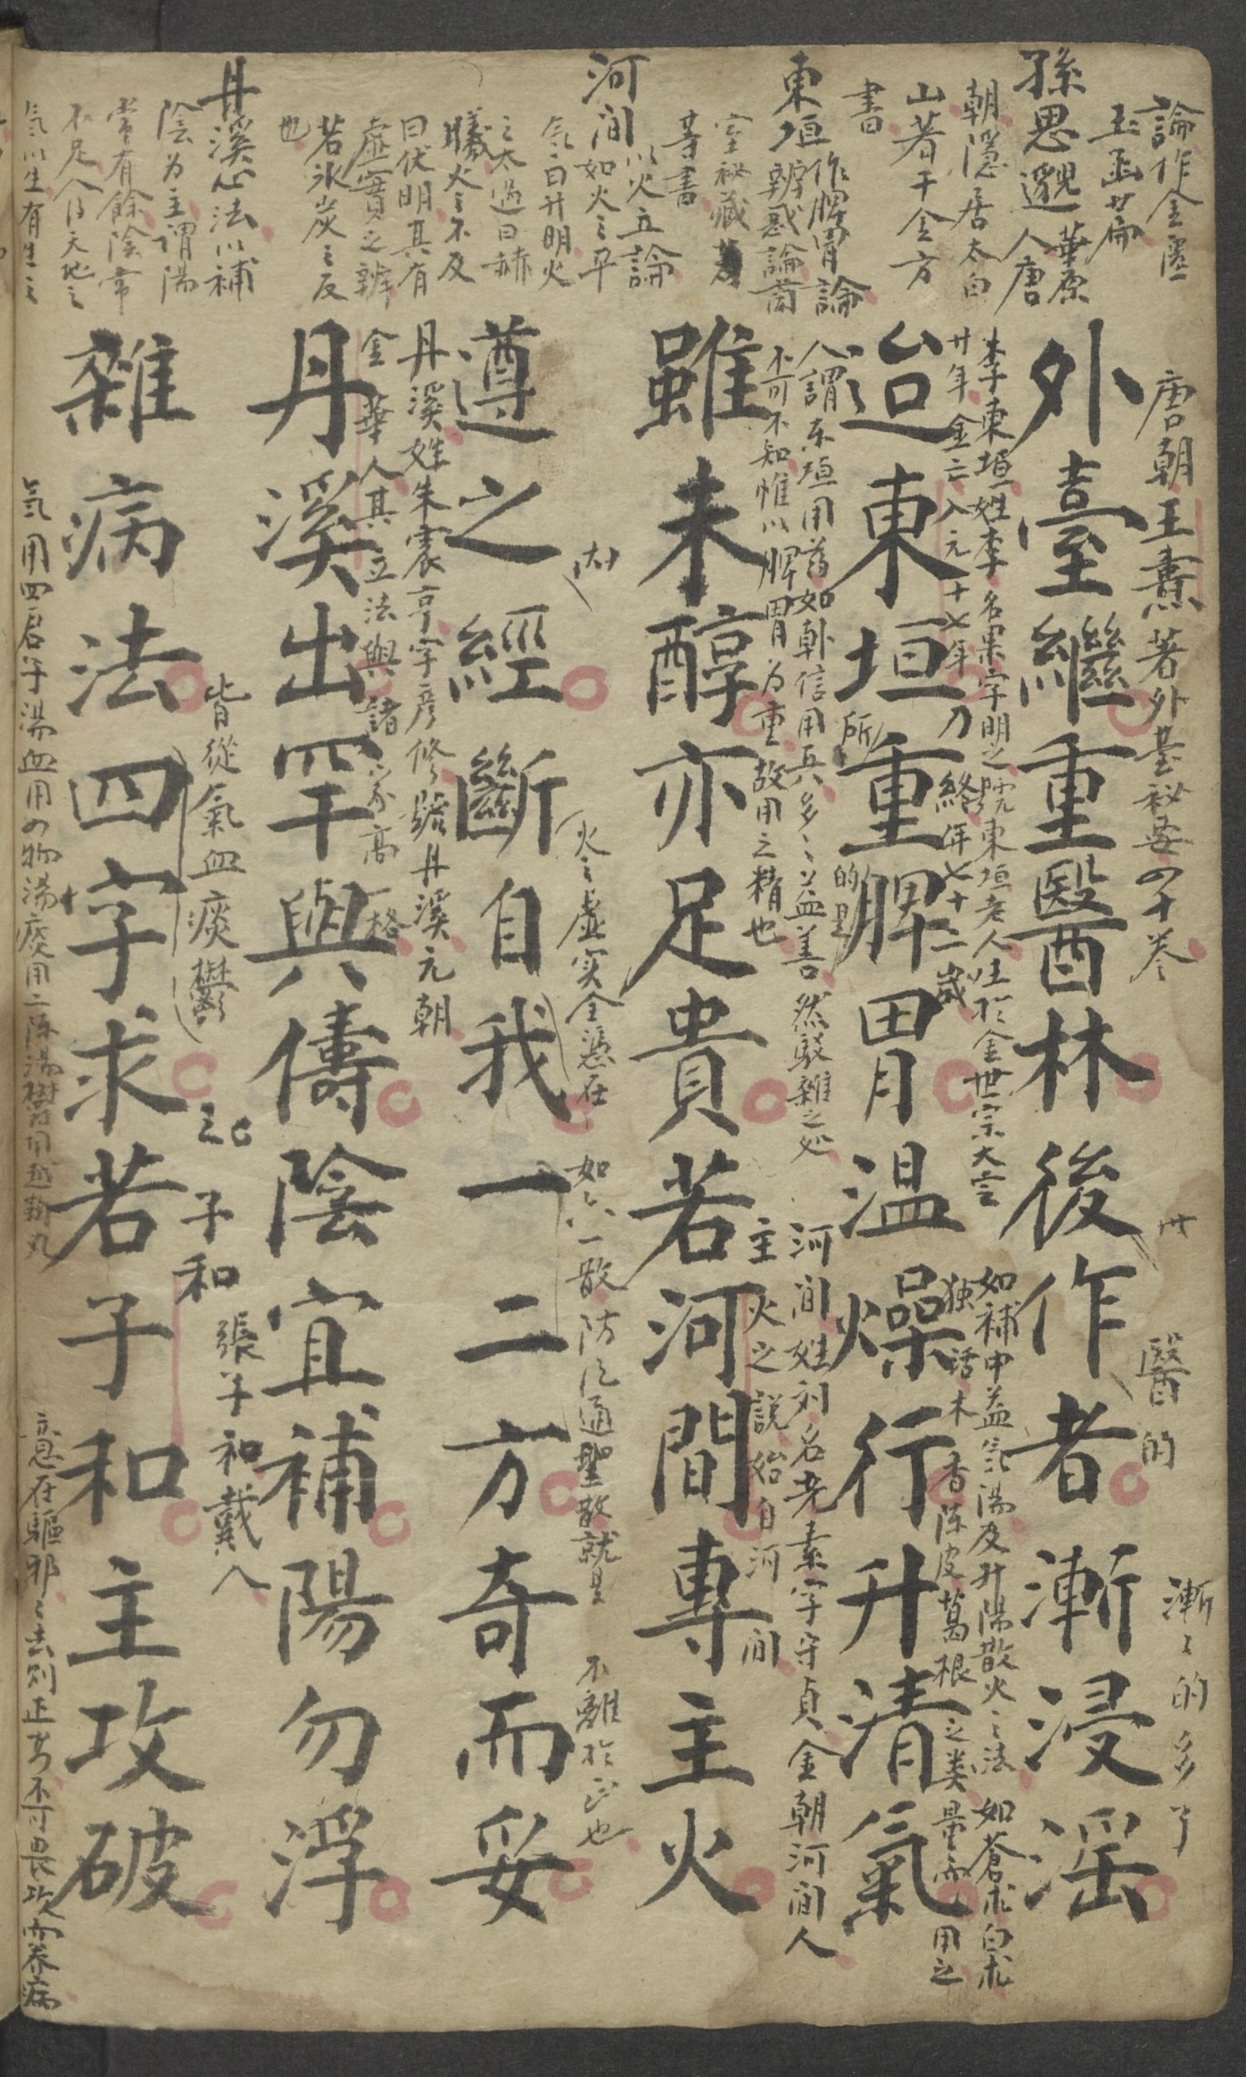 論作金匱
玉函廿扁
孫思邈華原
人唐
朝隱居太白
山著千金方
書
東垣作脾胃論
辨惑論蘭
室秘藏
等書
河間以火立論
如火之平
氣曰升明火
之太過曰赫
曦火之不及
曰伏明其有
虛實之辨
若氷炭之反
也
丹溪心法以補
陰为主謂陽
常有餘陰常
不足人得天地之
氣以生有生之
唐朝王燾著外臺秘要四十卷
世
醫的
漸之的多了
外臺繼重醫林後作者漸浸滛
李東垣姓李名杲字明之號東垣老人生於金世宗大定
廿年金亡入元十七年乃終年七十二歲
如補中益氣湯及升陽散火之法如蒼朮白朮
独活木香陈皮葛根之类量而用之
迨東垣重脾胃温燥行升清氣
所
的是
人謂东垣用药如韩信用兵多多益善然駁雜之処
不可不知惟以脾胃为重故用之精也
河间姓刘名完素字守貞金朝河间人
主火之説始自河间
雖未醇亦足貴若河間專主火
火之虛实全憑在
如六一散防风通聖散就是
不離於正也
遵之經斷自我一二方奇而妥
丹溪姓朱震亨字彦修號丹溪元朝
金華人其立法與諸家高一格
丹溪出罕與儔陰宜補陽勿浮
皆從氣血痰鬱
子和
張子和戴人
雜病法四字求若子和主攻破
氣用四君子湯血用四物湯痰用二陈湯鬱用越鞠丸
意在驅邪邪去则正安不可畏攻而养病